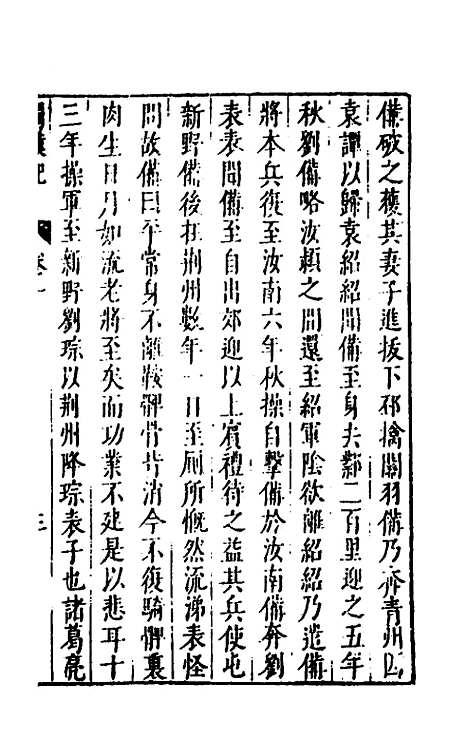 備破之獲其妻子進拔下邳擒關羽備乃奔青州因
袁譚以歸袁紹紹聞備至身去鄴二百里迎之五年
秋劉備略汝頴之間還至紹軍陰欲離紹紹乃遣備
將本兵復至汝南六年秋操自擊備於汝南備奔劉
表表聞備至自出郊迎以上賓禮待之益其兵使屯
新野備後在荆州數年一日至厠所慨然流涕表怪
問故備曰平常身不離鞍髀骨皆消今不復騎髀裏
肉生日月如流老將至矣而功業不建是以悲耳十
三年操軍至新野劉琮以荆州降琮表子也諸葛亮
卷一
三